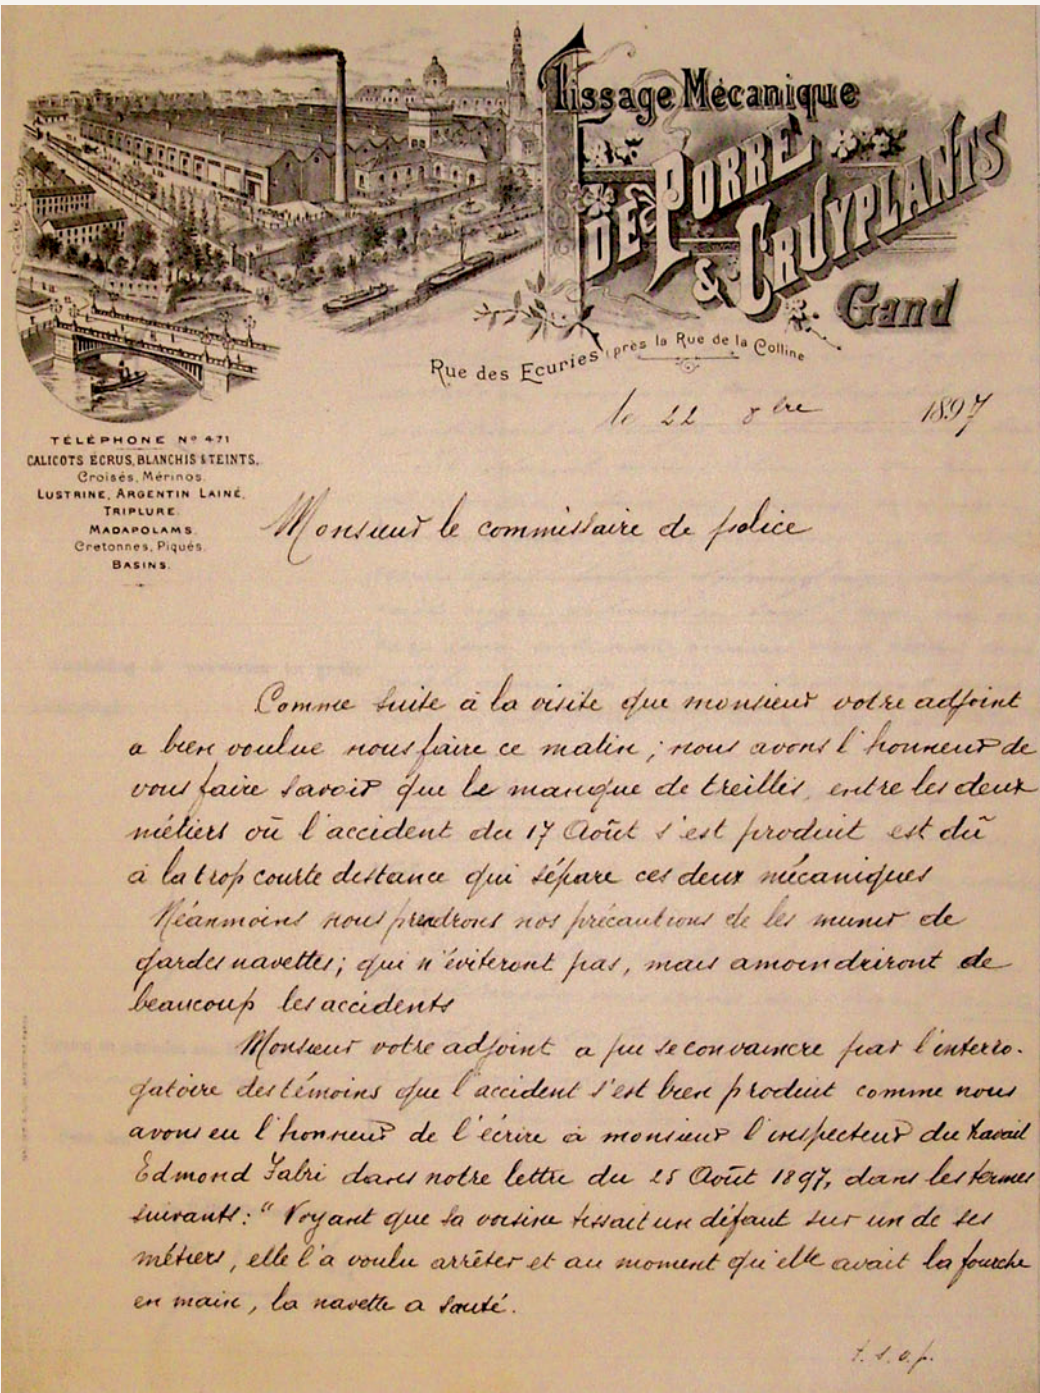 Tissage Mécanique
DE PORRE
& CRUYPLANTS
Gand
Rue des Ecuries (près la Rue de la Colline
le 22 8bre 1897
TÉLÉPHONE Nº 471
CALICOTS ECRUS, BLANCHIS & TEINTS,
Croisés, Mérinos,
LUSTRINE, ARGENTIN LAINÉ,
TRIPLURE,
MADAPOLAMS,
Cretonnes, Piqués,
BASINS.
Monsieur le commissaire de police
Comme suite à la visite que monsieur votre adjoint
a bien voulue nous faire ce matin ; nous avons l'honneur de
vous faire savoir que le manque de treillis, entre les deux
métiers où l'accident du 17 Août s'est produit est dû
à la trop courte distance qui sépare ces deux mécaniques
Néanmoins nous prendrons nos précautions de les munir de
gardes navettes; qui n'éviteront pas, mais amoindriront de
beaucoup les accidents
Monsieur votre adjoint a pu se convaincre par l'interro-
gatoire des témoins que l'accident s'est bien produit comme nous
avons eu l'honneur de l'écrire à monsieur l'inspecteur du travail
Edmond Fabri dans notre lettre du 25 Août 1897, dans les termes
suivants: "Voyant que sa voisine tissait un défaut sur un de ses
métiers, elle l'a voulu arrêter et au moment qu'elle avait la fourche
en main, la navette a sauté.
t. s. v. p.